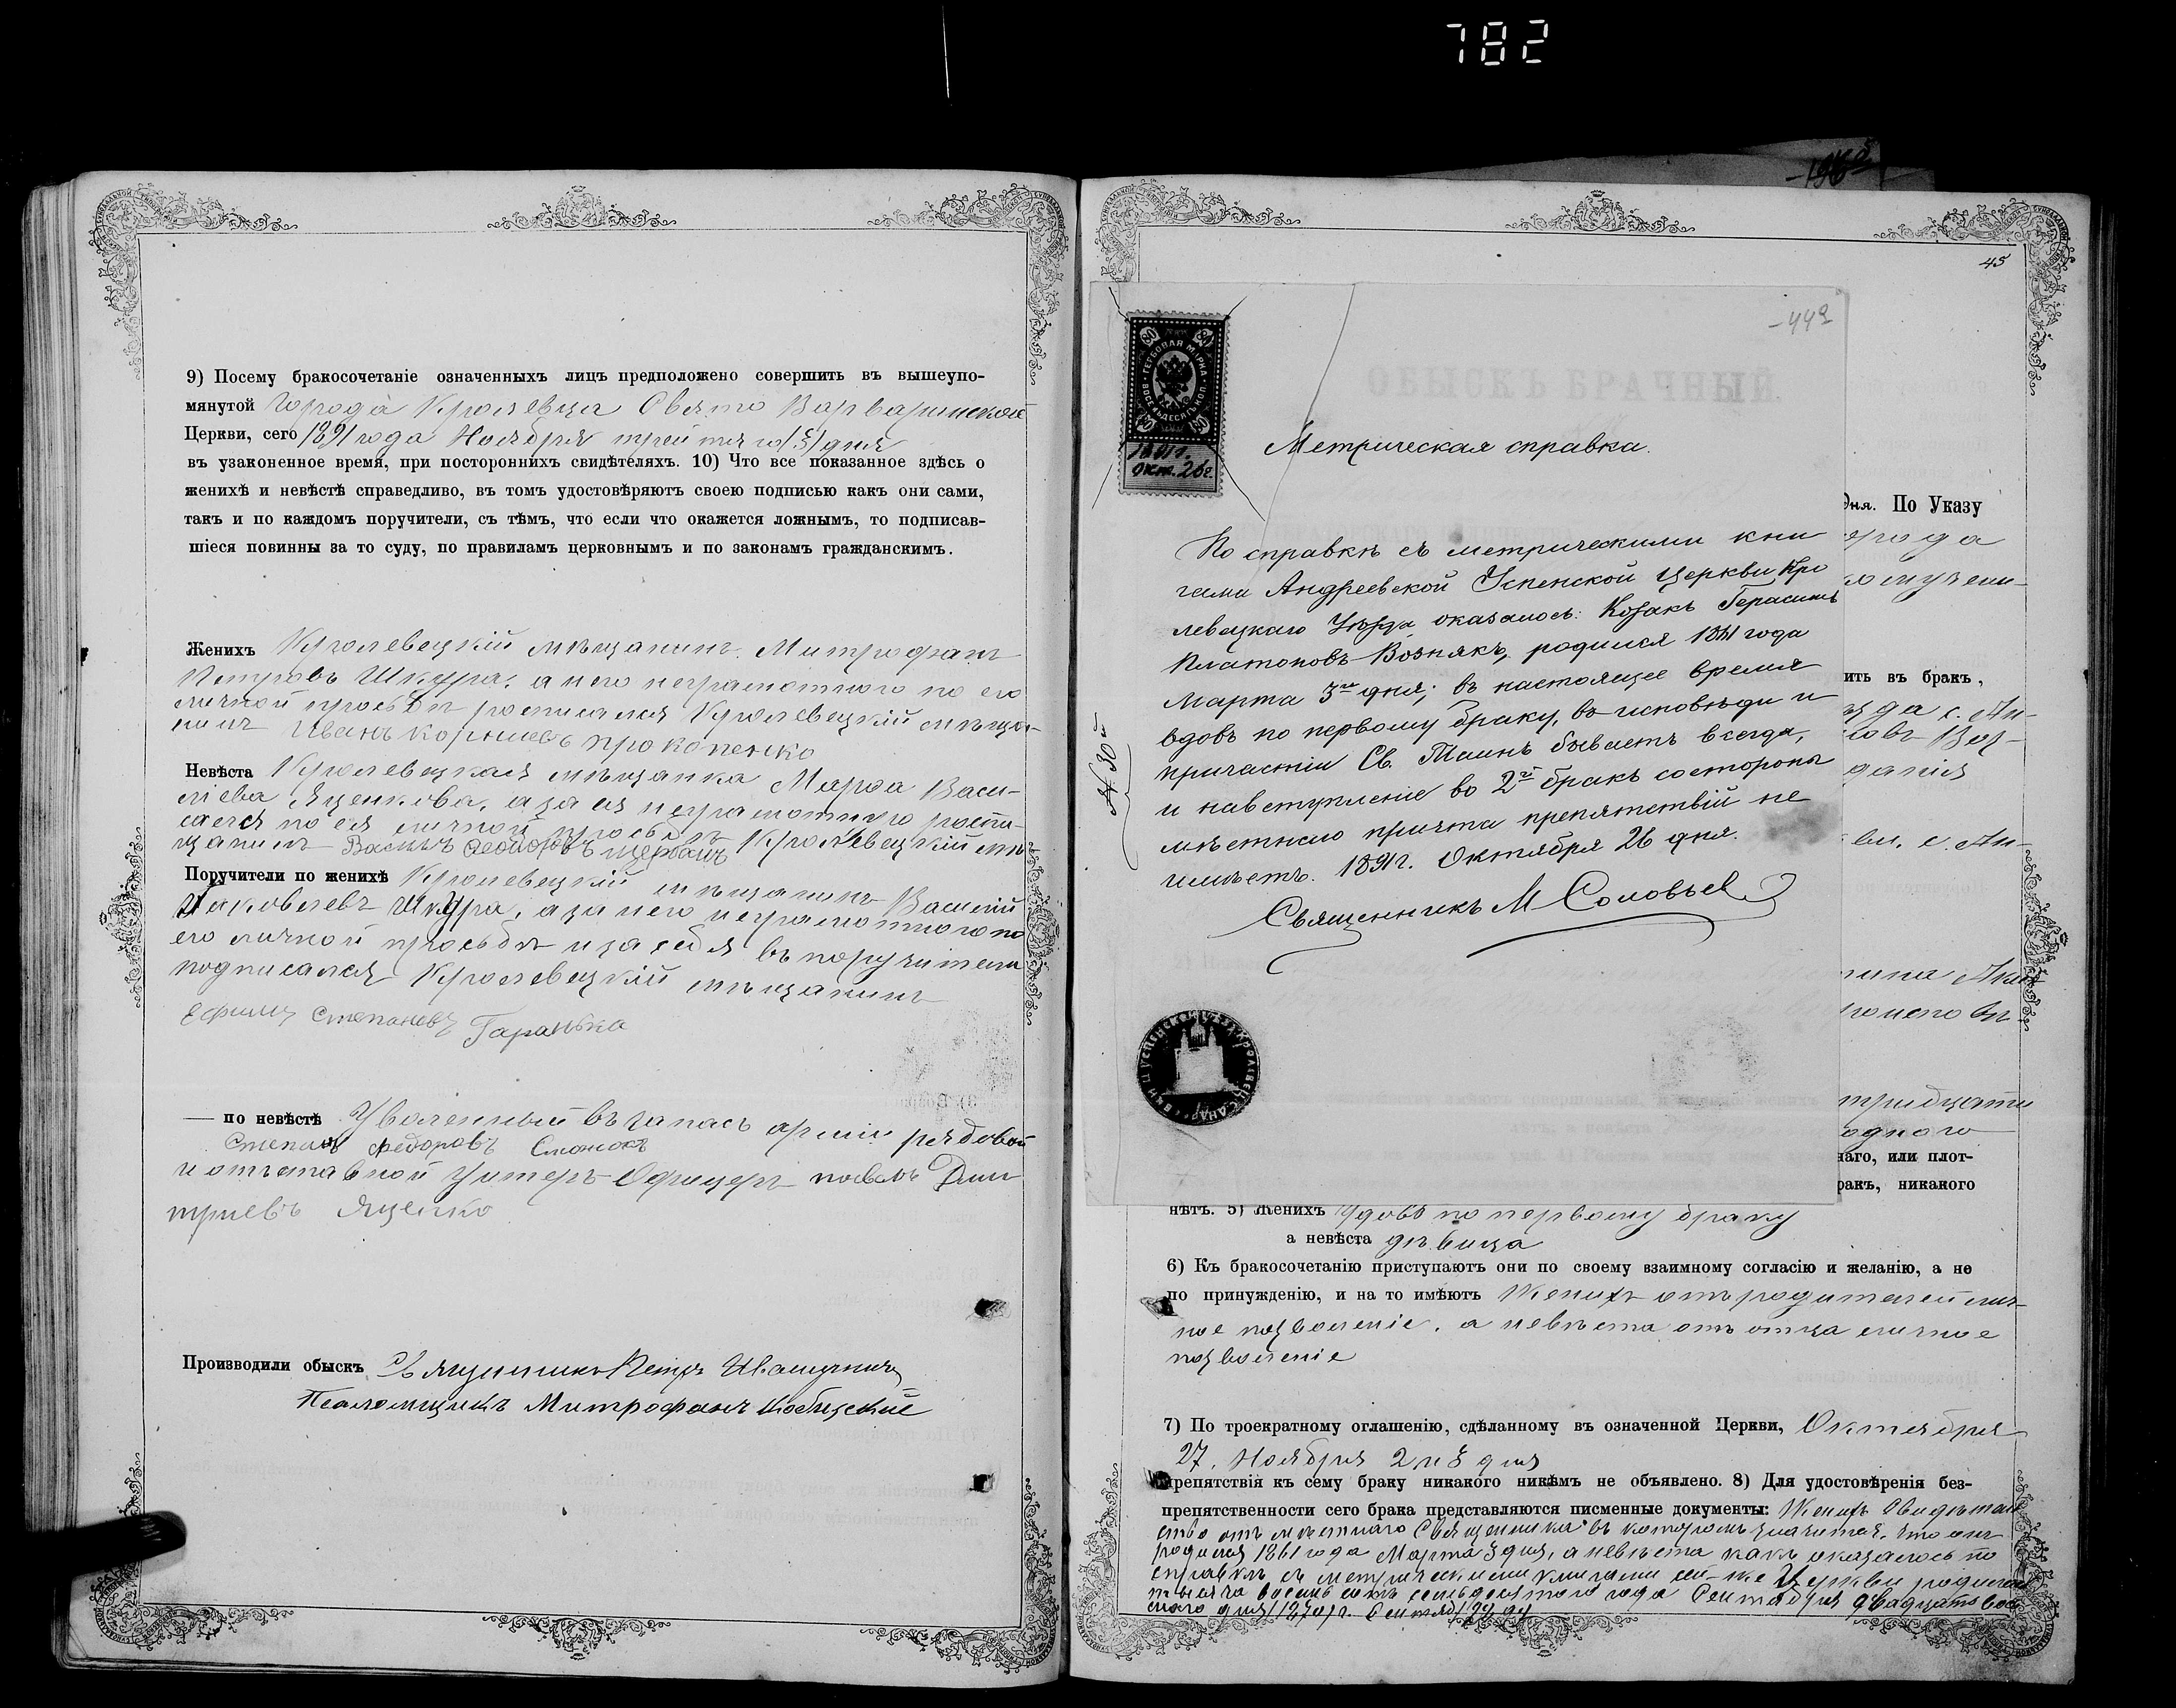 782
9) Посему бракосочетаніе означенныхъ лицъ предположено совершить въ вышеупо-
мянутой города Кролевца Свято Варваринской
Церкви, сего 1891 года Ноября третьяго (3) дня
въ узаконенное время, при постороннихъ свидѣтеляхъ. 10) Что все показанное здѣсь о
женихѣ и невѣстѣ справедливо, въ томъ удостовѣряютъ своею подписью какъ они сами,
такъ и по каждомъ поручители, съ тѣмъ, что если что окажется ложнымъ, то подписав-
шіеся повинны за то суду, по правиламъ церковнымъ и по законамъ гражданскимъ.
Женихъ Кролевецкій мѣщанинъ Митрофанъ
Петровъ Шкура, а него неграмотного по его
личной просьбѣ росписался Кролевецкій мѣща-
нинъ Иванъ Корнѣевъ Прокопенко
Невѣста Кролевецкая мѣщанка Марфа Васи-
лiева Яценкова, а за ея неграмотную роспи-
сался по ея личной просьбѣ Кролевецкій мѣ
щанинъ Щербакъ
Поручители по женихѣ Кролевецкій мѣщанинъ Василій
Яковлевъ Шкура, а за него неграмотного по
его личной просьбѣ и за себя въ поручители
подписался Кролевецкій мѣщанинъ
Ефимъ Степановъ Гаранька
— по невѣстѣ Уволенный въ запасъ арміи рядовой
Степанъ Федоровъ
и отставной Унтеръ-Офицеръ Дми
тріевъ Яценко
Производили обыскъ Священникъ Петръ
Псаломщикъ Митрофанъ
45
-442
ОБЫСКЪ БРАЧНЫЙ
ГЕРБОВАЯ МАРКА
ВОСЕМЬДЕСЯТЪ КОП.
80
1891 г.
Окт. 26 г.
Метрическая справка.
По справкѣ съ метрическими кни
гами Андреевской Успенской Церкви Кро
левецкаго Уѣзда оказалось: Козакъ Герасимъ
Платоновъ Вознякъ, родился 1861 года
Марта 3го дня; въ настоящее время
вдовъ по первому браку, въ исповѣди и
причастіи Св. Таинъ бываетъ всегда,
и на вступленіе во 2й бракъ со стороны
мѣстнаго причта препятствій не
имѣетъ. 1891 г. Октября 26 дня.
Священникъ М Соловьев
№ 30й
дня. По Указу
города
ить въ бракъ,
тридцати
одного
наго, или плот-
ракъ, никакого
нѣтъ. 5) Женихъ Удовъ по первому браку
а невѣста дѣвица
6) Къ бракосочетанію приступаютъ они по своему взаимному согласію и желанію, а не
по принужденію, и на то имѣютъ Женихъ отъ родителей лич-
ное позволеніе, а невѣста отъ отца личное
позволеніе
7) По троекратному оглашенію, сдѣланному въ означенной Церкви, Октября
27, Ноября 2 и 3 дня
препятствія къ сему браку никакого никѣмъ не объявлено. 8) Для удостовѣренія без-
препятственности сего брака представляются писменные документы: Женихъ Свидѣтель
ство отъ мѣстнаго Священника въ которомъ значится, что онъ
родился 1861 года Марта 3 дня, а невѣста какъ оказалось по
справкѣ съ метрическими книгами сей-же Церкви родилась
тысяча восемь сотъ семьдесятого года Сентября двадцать вось
мого дня